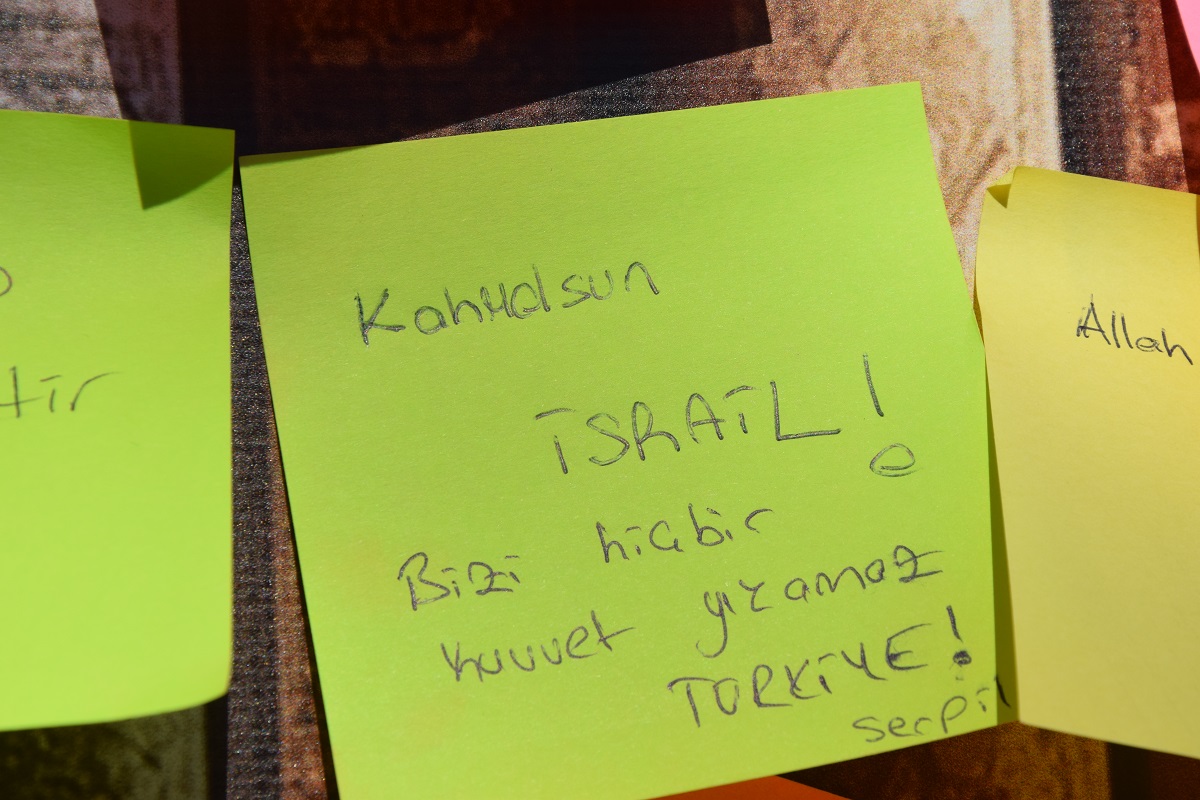 tir
Kahrolsun
İSRAİL!
Bizi hiçbir
kuvvet yıkamaz
TÜRKİYE!
serpil
Allah